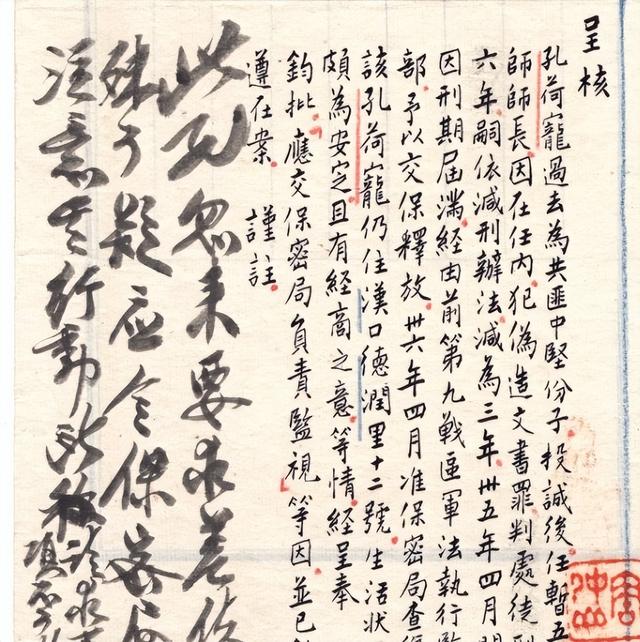 呈核
孔荷寵過去為共匪中堅份子投誠後任暫五
師師長因在任内犯偽造文書罪判處徒刑
六年嗣依減刑辦法減為三年卅五年四月間
因刑期屆滿經由前第九戰區軍法執行監
部予以交保釋放卅六年四月准保密局查復
該孔荷寵仍住漢口德潤里十二號生活狀
頗為安定且有經商之意等情經呈奉
鈞批應交保密局負責監視等因並已
遵在案 謹註
此孔忽来要求差
殊可疑应令保密局
注意其行動